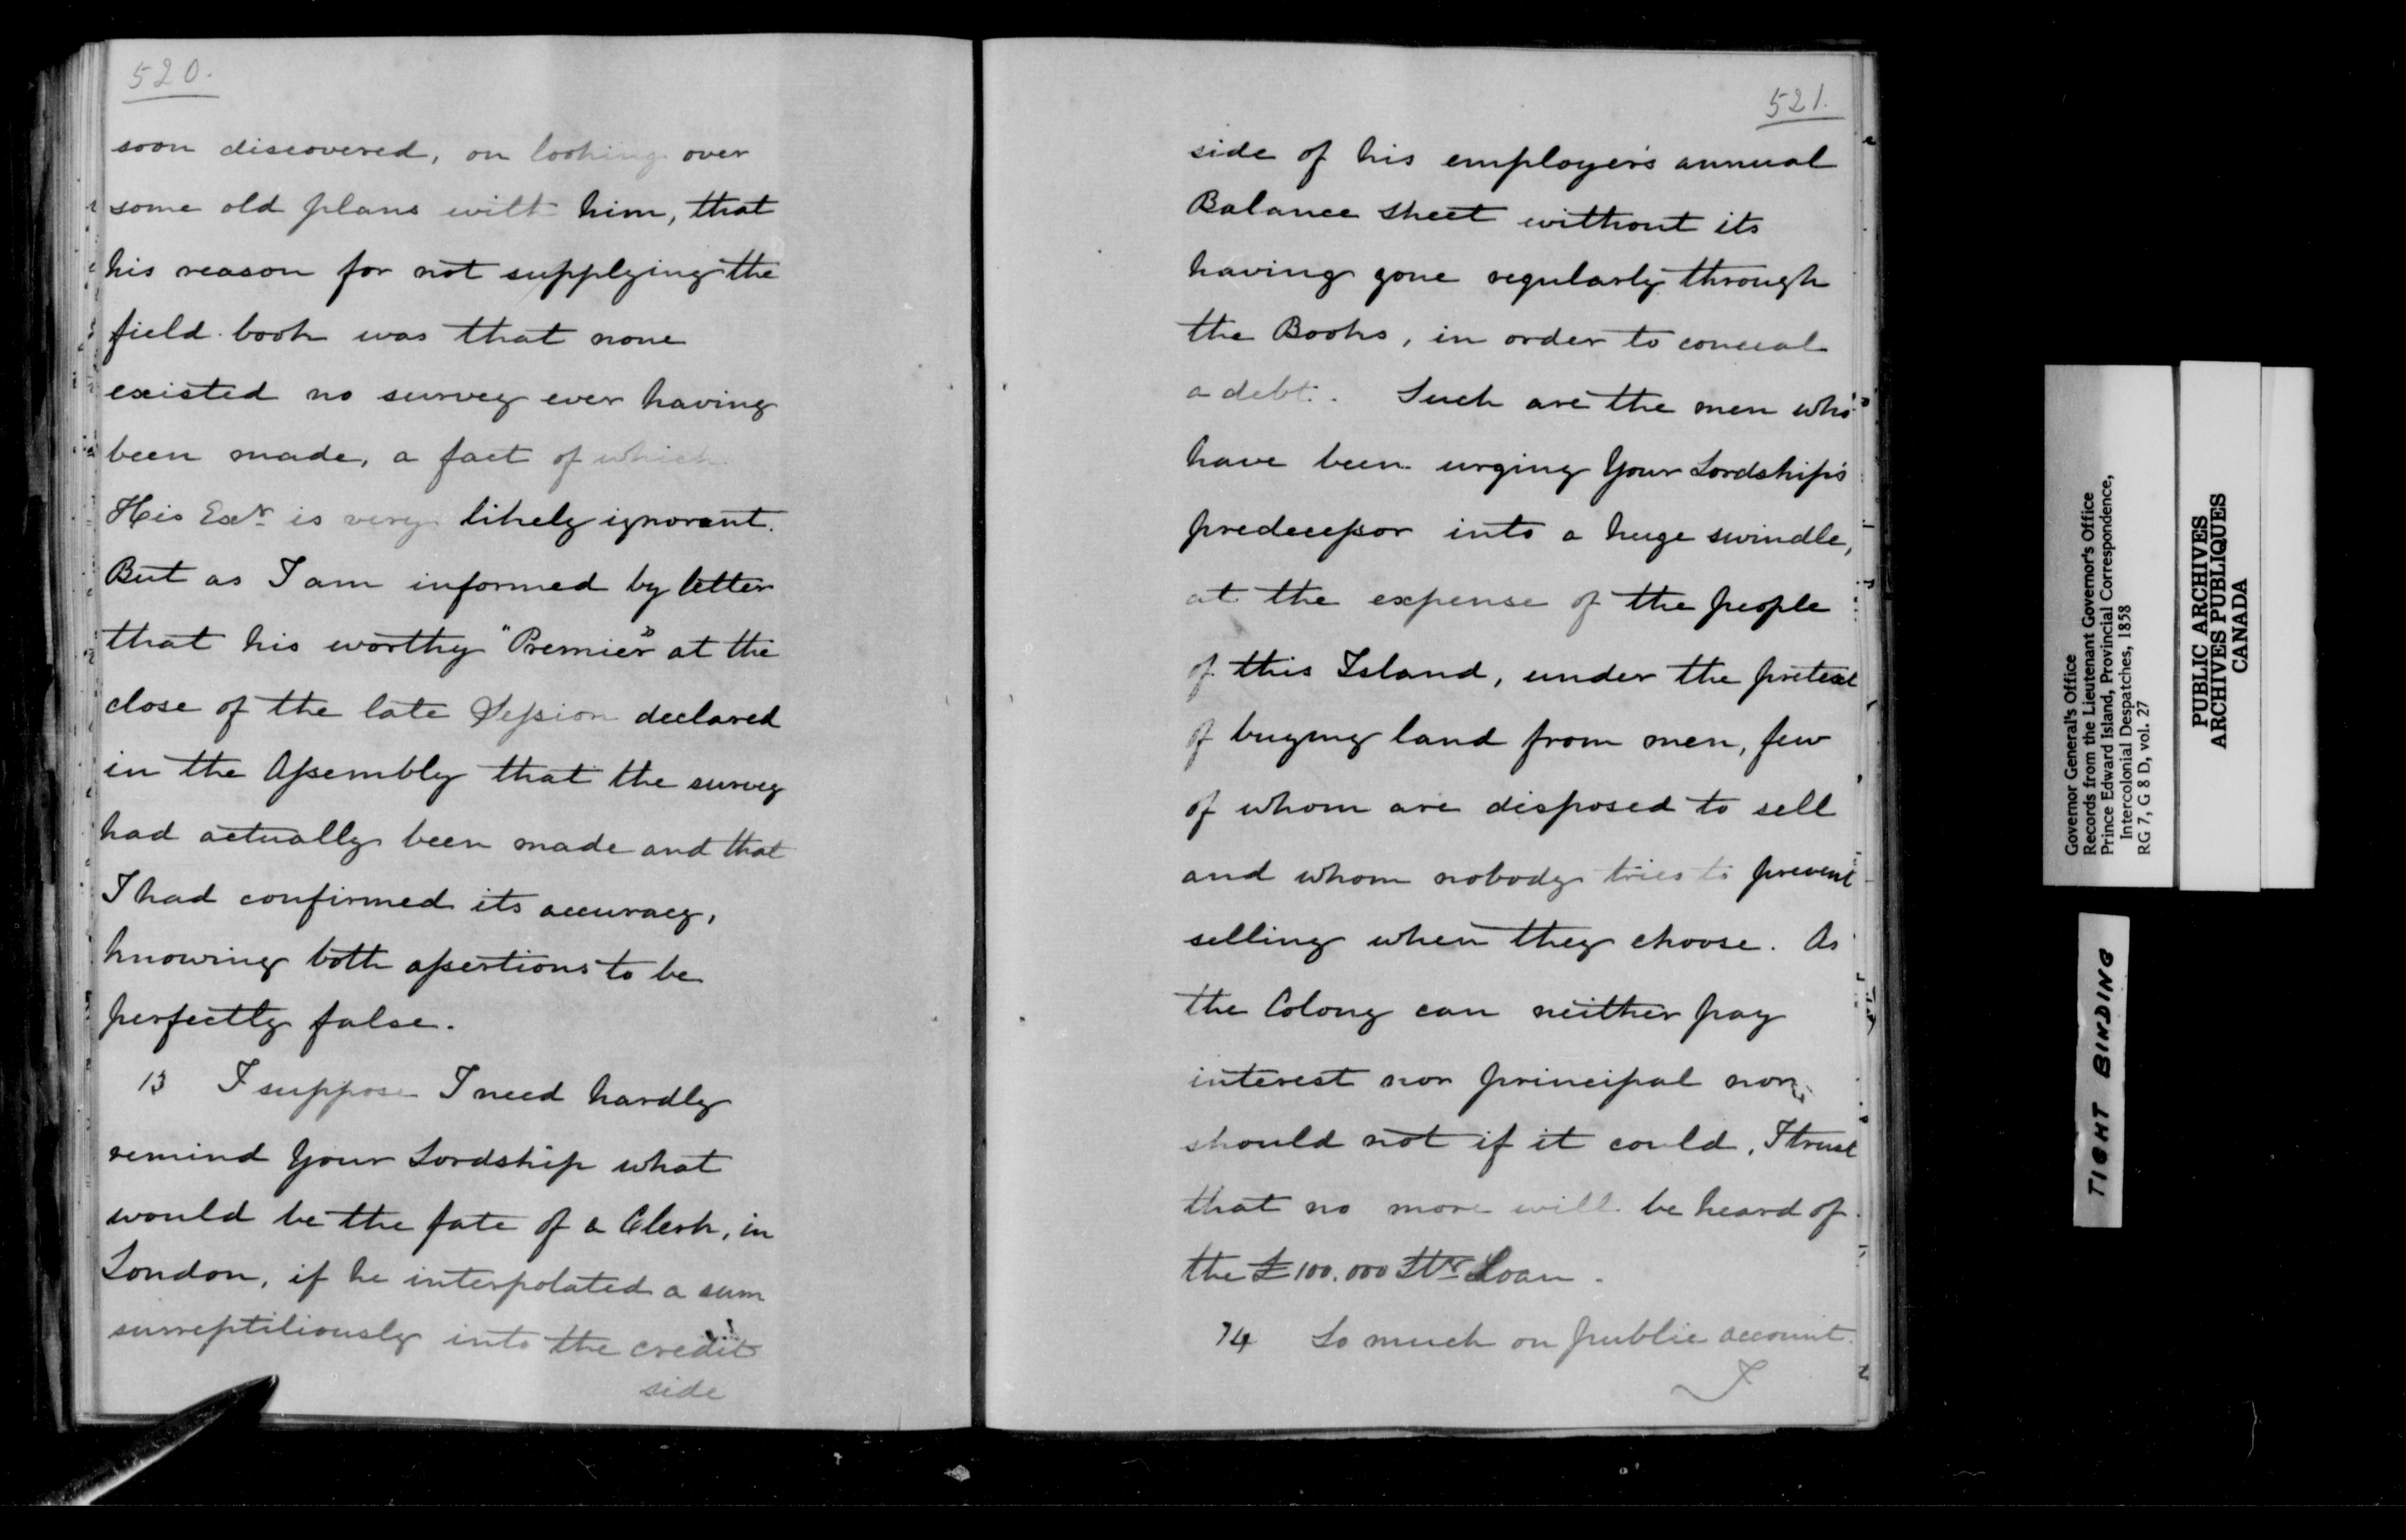 520.
soon discovered, on looking over
some old plans with him, that
his reason for not supplying the
field book was that none
existed no survey ever having
been made, a fact of which
His Exr. is very likely ignorant.
But as I am informed by letter
that his worthy "Premier" at the
close of the late Session declared
in the Assembly that the survey
had actually been made and that
I had confirmed its accuracy,
knowing both assertions to be
perfectly false.
13 I suppose I need hardly
remind Your Lordship what
would be the fate of a Clerk, in
London, if he interpolated a sum
surreptitiously into the credit
side
521.
side of his employer's annual
Balance sheet without its
having gone regularly through
the Books, in order to conceal
a debt. Such are the men who
have been urging Your Lordship's
predecessor into a huge swindle,
at the expense of the people
of this Island, under the pretext
of buying land from men, few
of whom are disposed to sell
and whom nobody tries to prevent
selling when they choose. As
the Colony can neither pay
interest nor principal nor
should not if it could, I trust
that no more will be heard of
the £100.000 Stg Loan.
14 So much on public account.
I
Governor General's Office
Records from the Lieutenant Governor's Office
Prince Edward Island, Provincial Correspondence,
Intercolonial Despatches, 1858
RG 7, G 8 D, vol. 27
PUBLIC ARCHIVES
ARCHIVES PUBLIQUES
CANADA
TIGHT BINDING